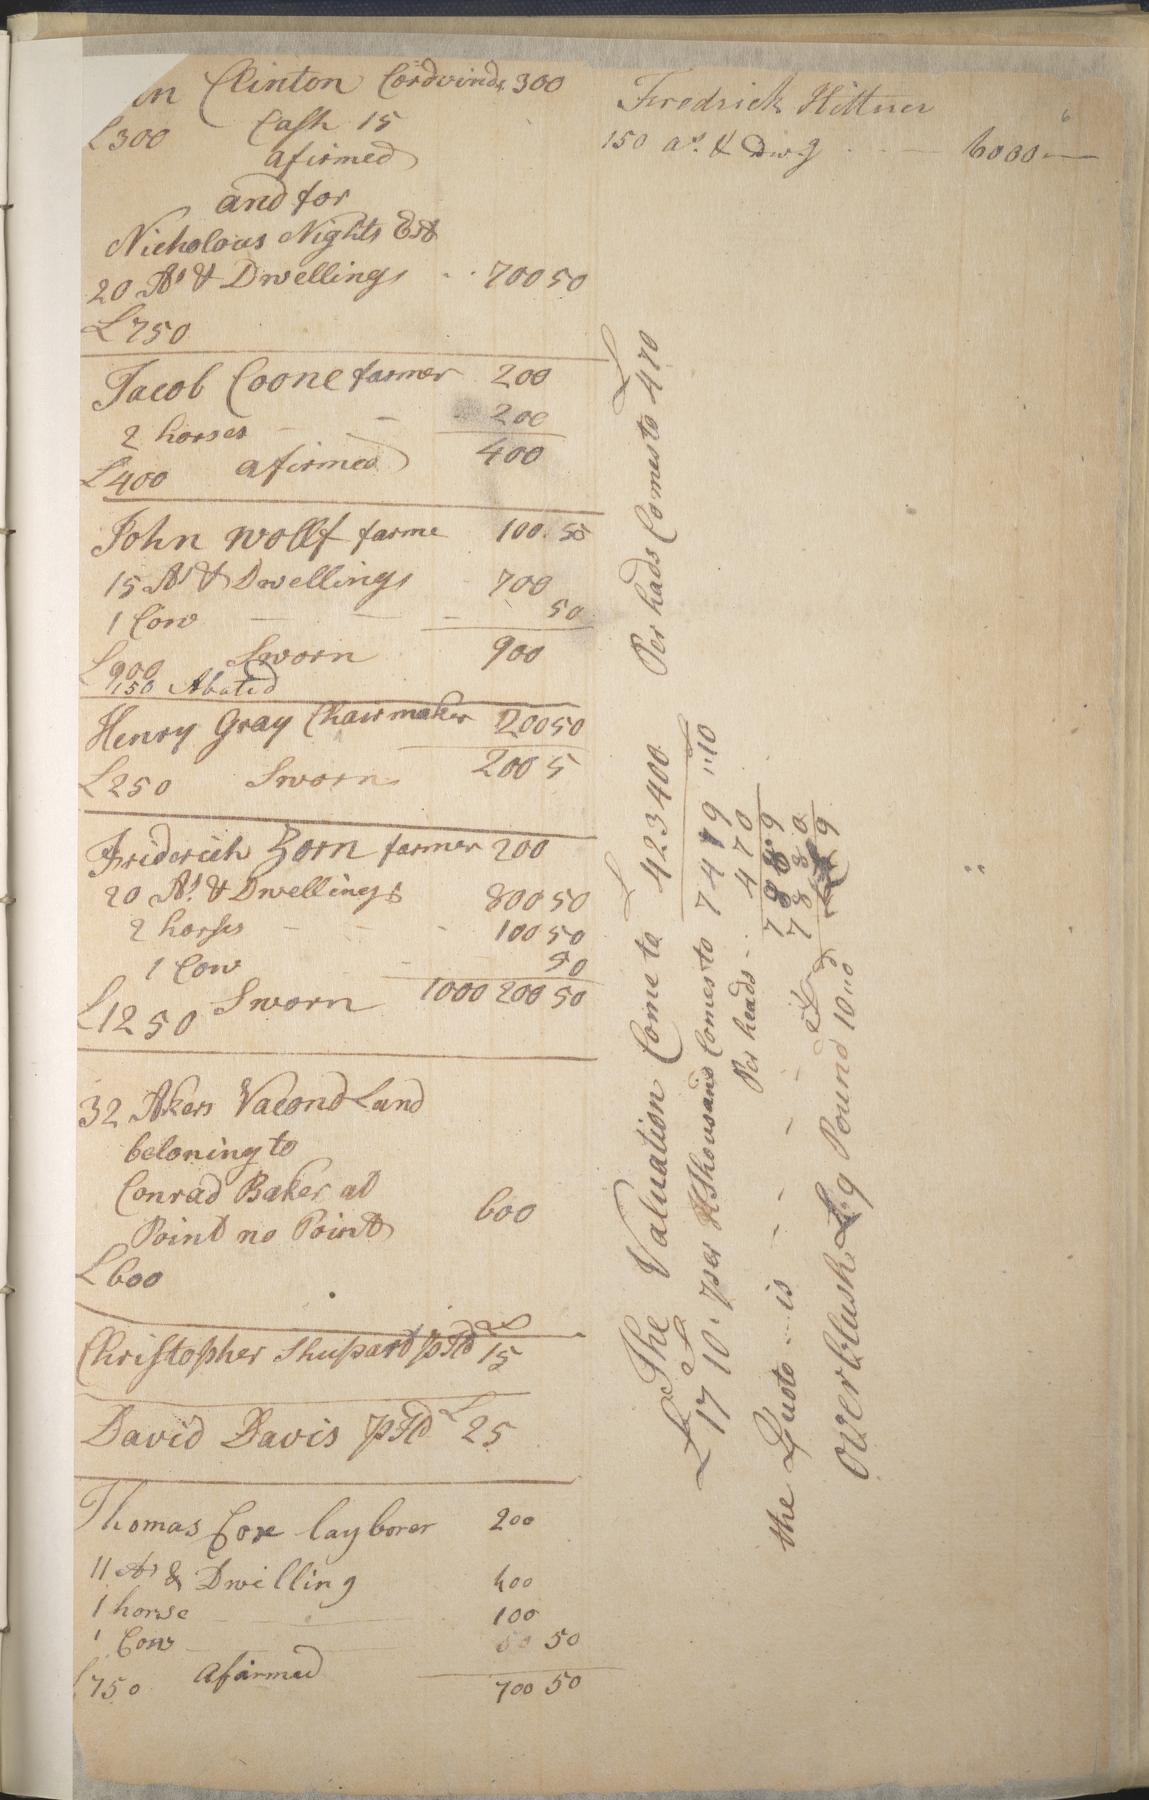 Clinton Cordwinds 300
£300 Cash 15
afirmed
and for
Nicholous Nights Est
20 As & Dwellings .. 700 50
£750
Jacob Coone farmer 200
2 horses - - 200
400
£400 afirmed
John Wollf farme 100 50
15 As & Dwellings 700
1 Cow - - - 50
£900 Sworn 900
150 Abated
Henry Gray Chairmaker 200 50
200 5
£250 Sworn
Friderich Zorn farmer 200
20 As. & Dwellings 800 50
2 horses - - - 100 50
1 Cow - 50
£1250 Sworn 1000 200 50
32 Akers Vacond Land
beloning to
Conrad Baker at
Point no Point 600
£600
£
Christopher Shupart pHd 15
David Davis pHd £25
Thomas Cox layborer 200
11 As & Dwilling 400
1 horse 100
1 Cow 50 50
£750 Afairmed 700 50
Fredrick Hittner
150 as. & Dwg - 6000 —
£
Per hads Comes to 470
£
The Valuation Come to 423400
£ S
17 10 per Thousand Comes to 7419 "10
Per heads .. 470
7889
the Quoto is - - - - 7880
Overblush £ 9 Pound 10 "d 9